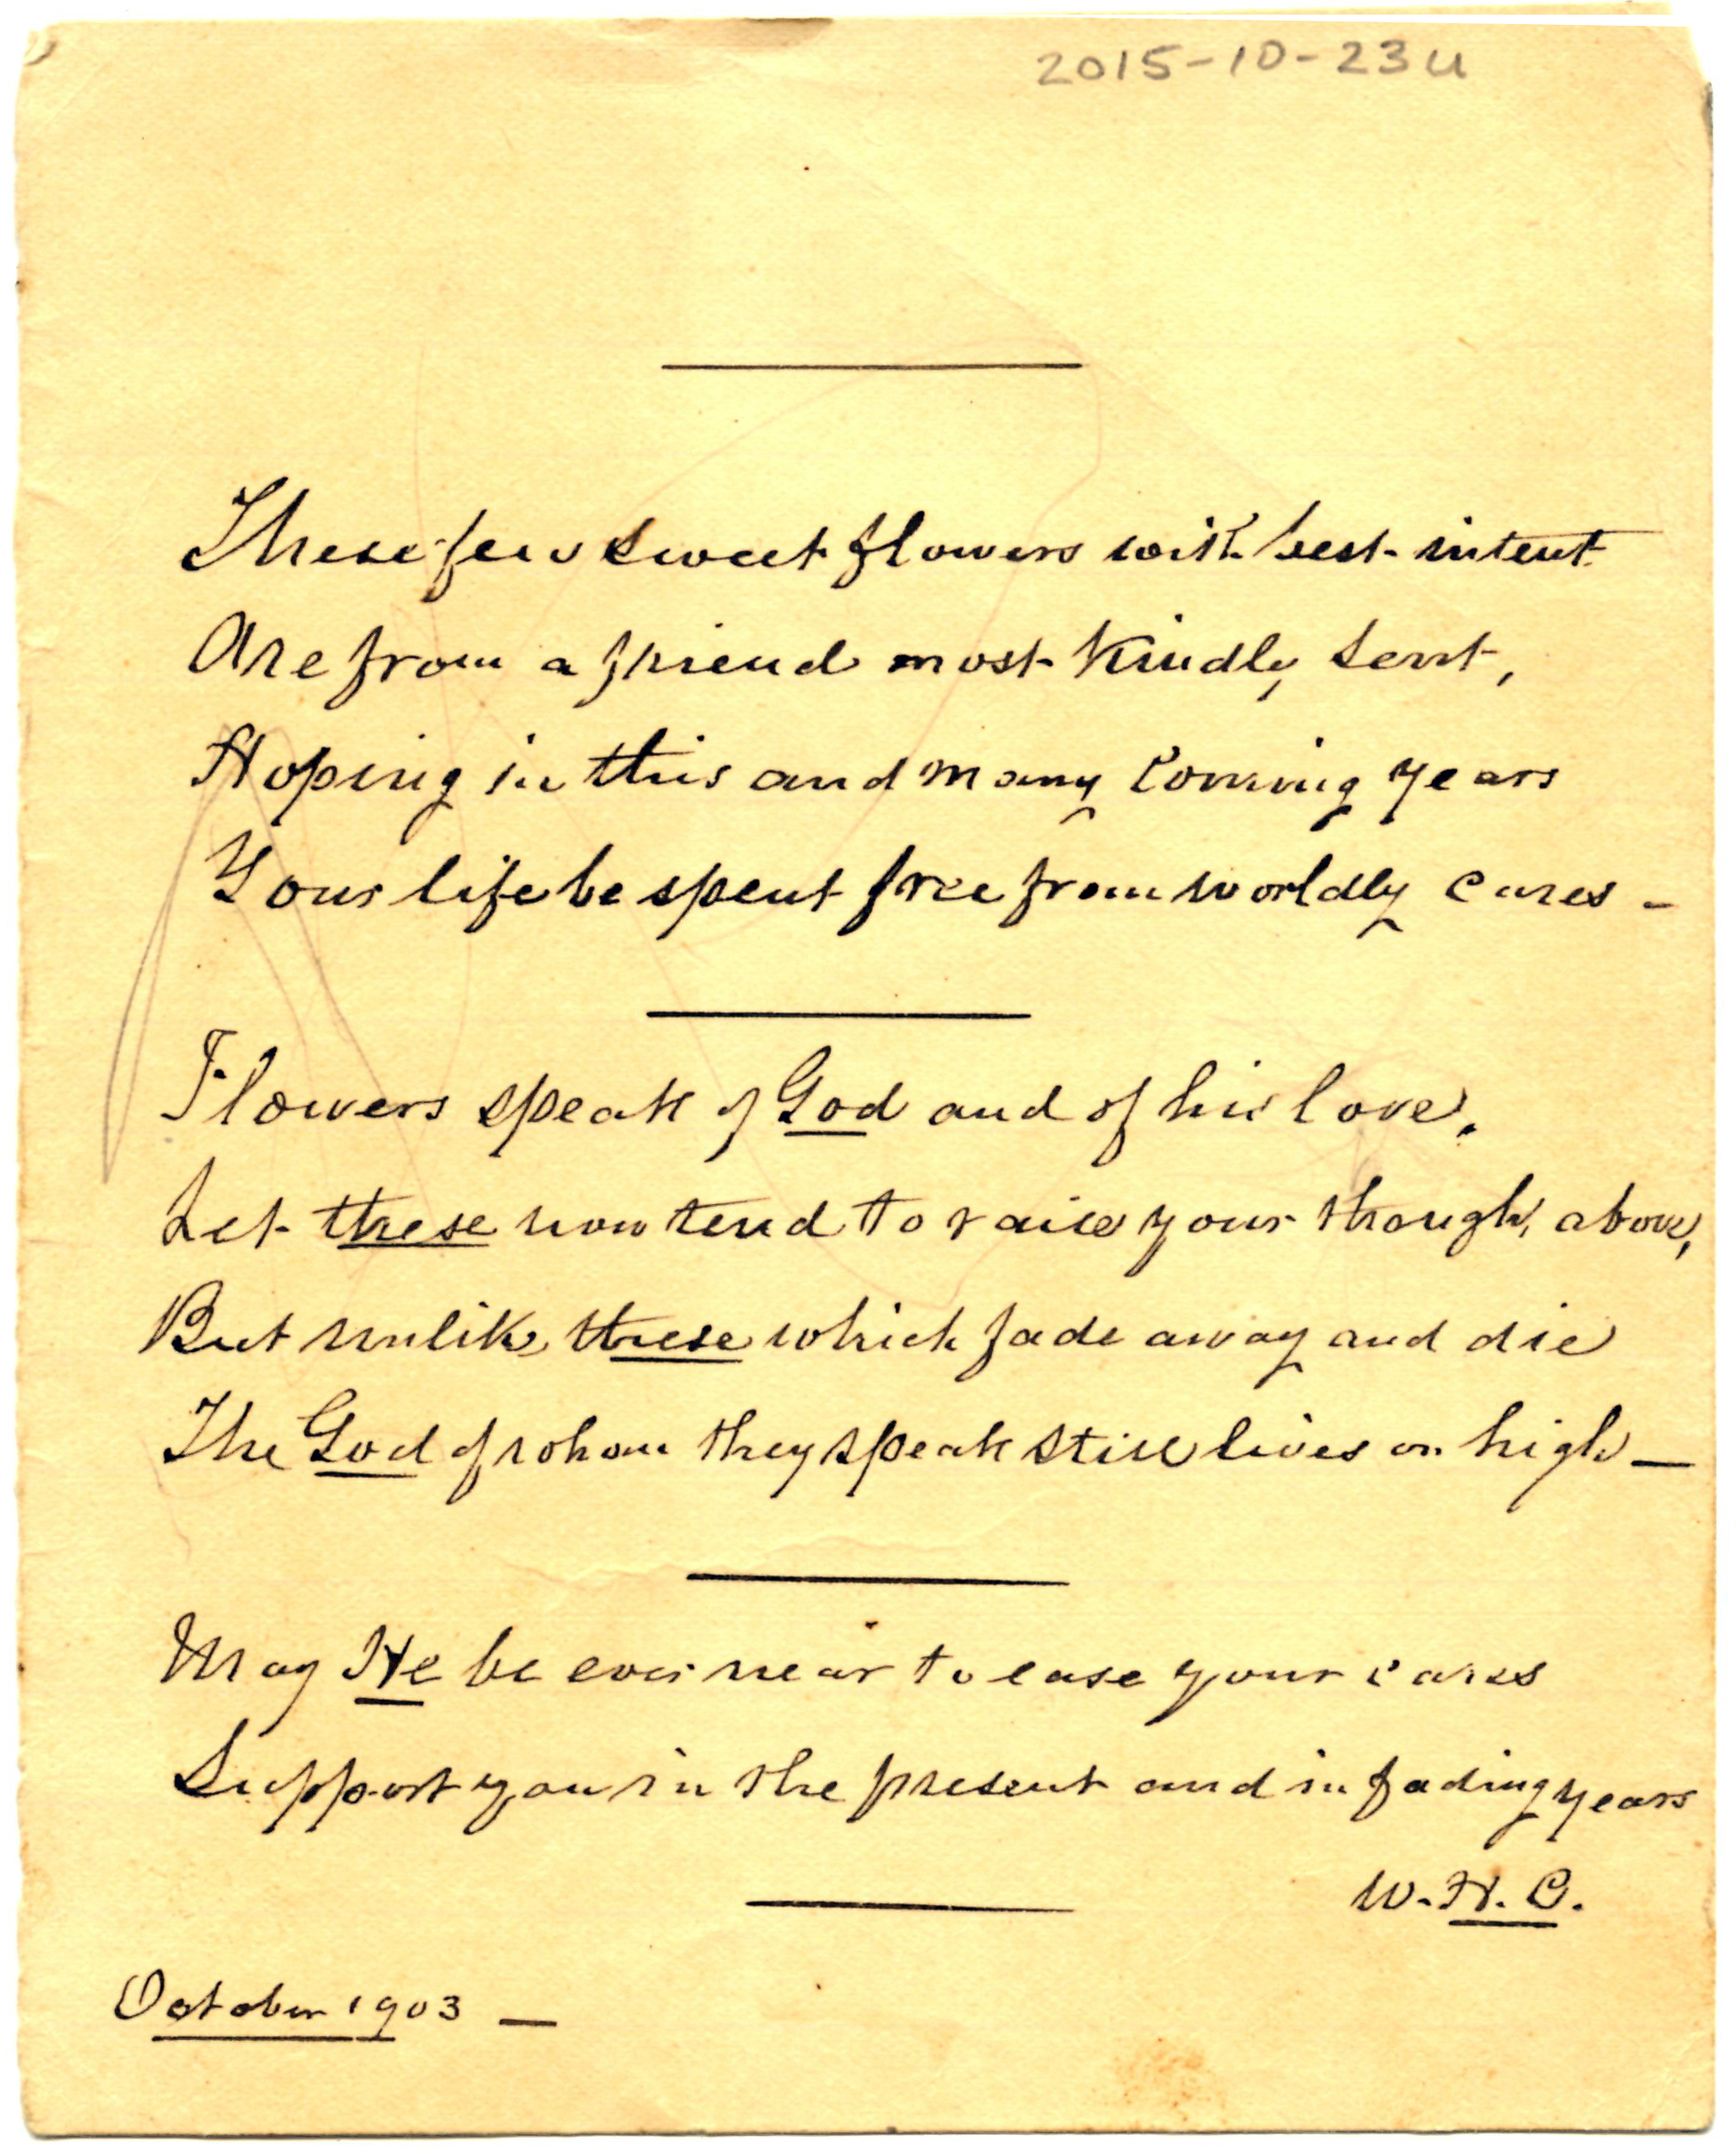 2015-10-23u
These few sweet flowers with best intent
Are from a friend most kindly sent,
Hoping in this and many coming years
Your life be spent free from worldly cares -
Flowers speak of God and of his love.
Let these now tend to raise your though, above,
But unlike these which fade away and die
The God of whom they speak still lives on high —
May He be ever near to ease your cares
Support you in the present and in fading years
W. H. C.
October 1903 —